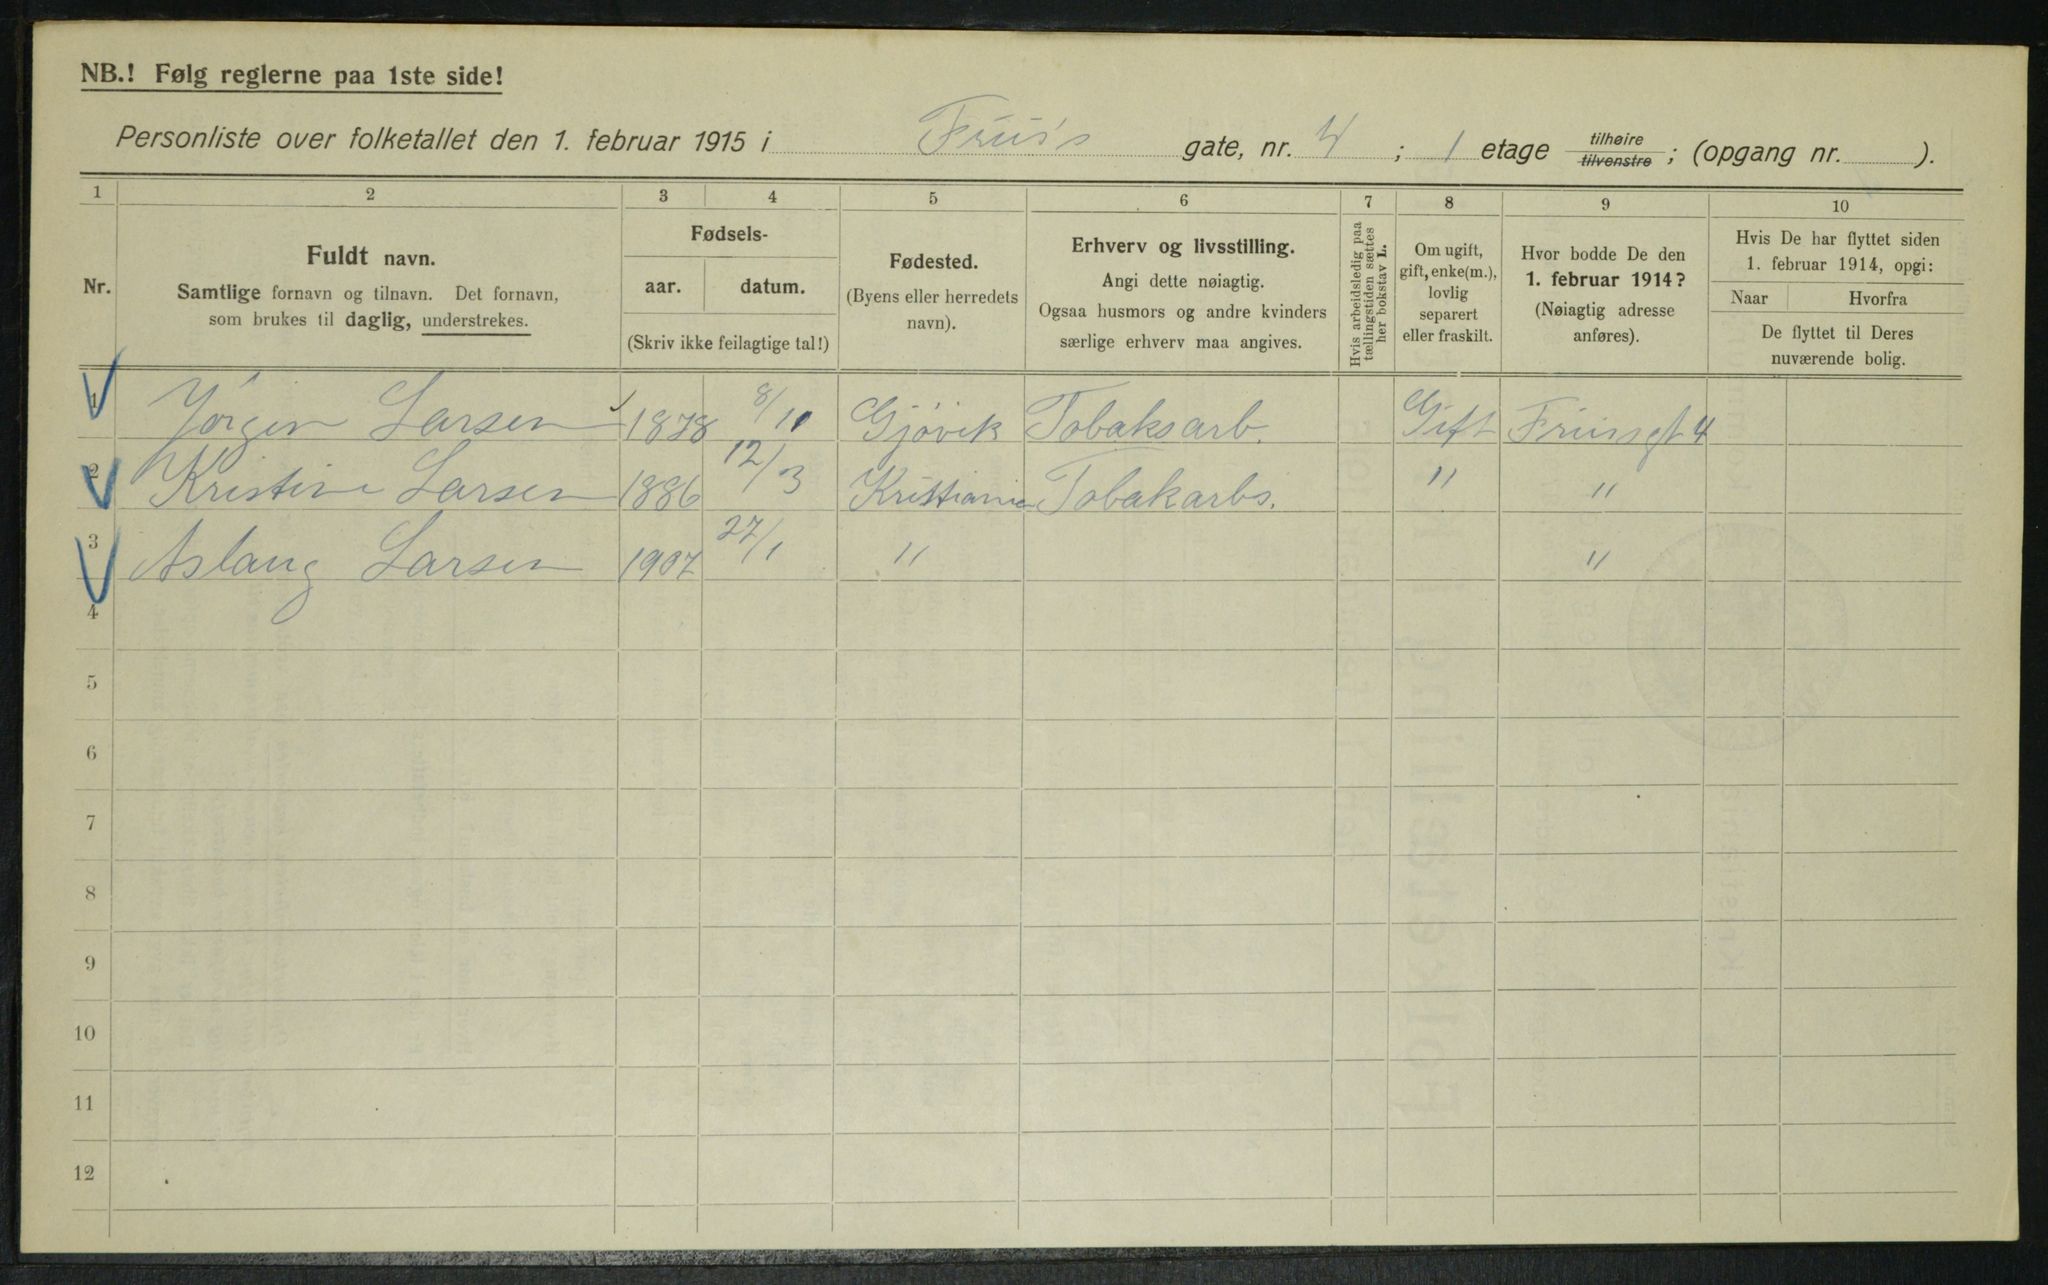 NB.! Følg reglerne paa 1ste side!
Personliste over folketallet den 1. februar 1915 i Friis's gate, nr. 4 ; 1 etage tilhøire tilvenstre ; (opgang nr. ).
1 2 3 4 5 6 7 8 9 10
Nr.
Fuldt navn.
Samtlige fornavn og tilnavn. Det fornavn,
som brukes til daglig, understrekes.
Fødsels-
aar. datum.
(Skriv ikke feilagtige tal!)
Fødested.
(Byens eller herredets
navn).
Erhverv og livsstilling.
Angi dette nøiagtig.
Ogsaa husmors og andre kvinders
særlige erhverv maa angives.
Hvis arbeidsledig paa
tællingstiden sættes
her bokstav L.
Om ugift,
gift, enke(m.),
lovlig
separert
eller fraskilt.
Hvor bodde De den
1. februar 1914?
(Nøiagtig adresse
anføres).
Hvis De har flyttet siden
1. februar 1914, opgi:
Naar Hvorfra
De flyttet til Deres
nuværende bolig.
1 Jörgen Larsen 1878 8/11 Gjövik Tobaksarb. Gift Friisgt 4
2 Kristine Larsen 1886 12/3 Kristiania Tobakarbs. " "
3 Aslaug Larsen 1907 27/1 " "
4
5
6
7
8
9
10
11
12